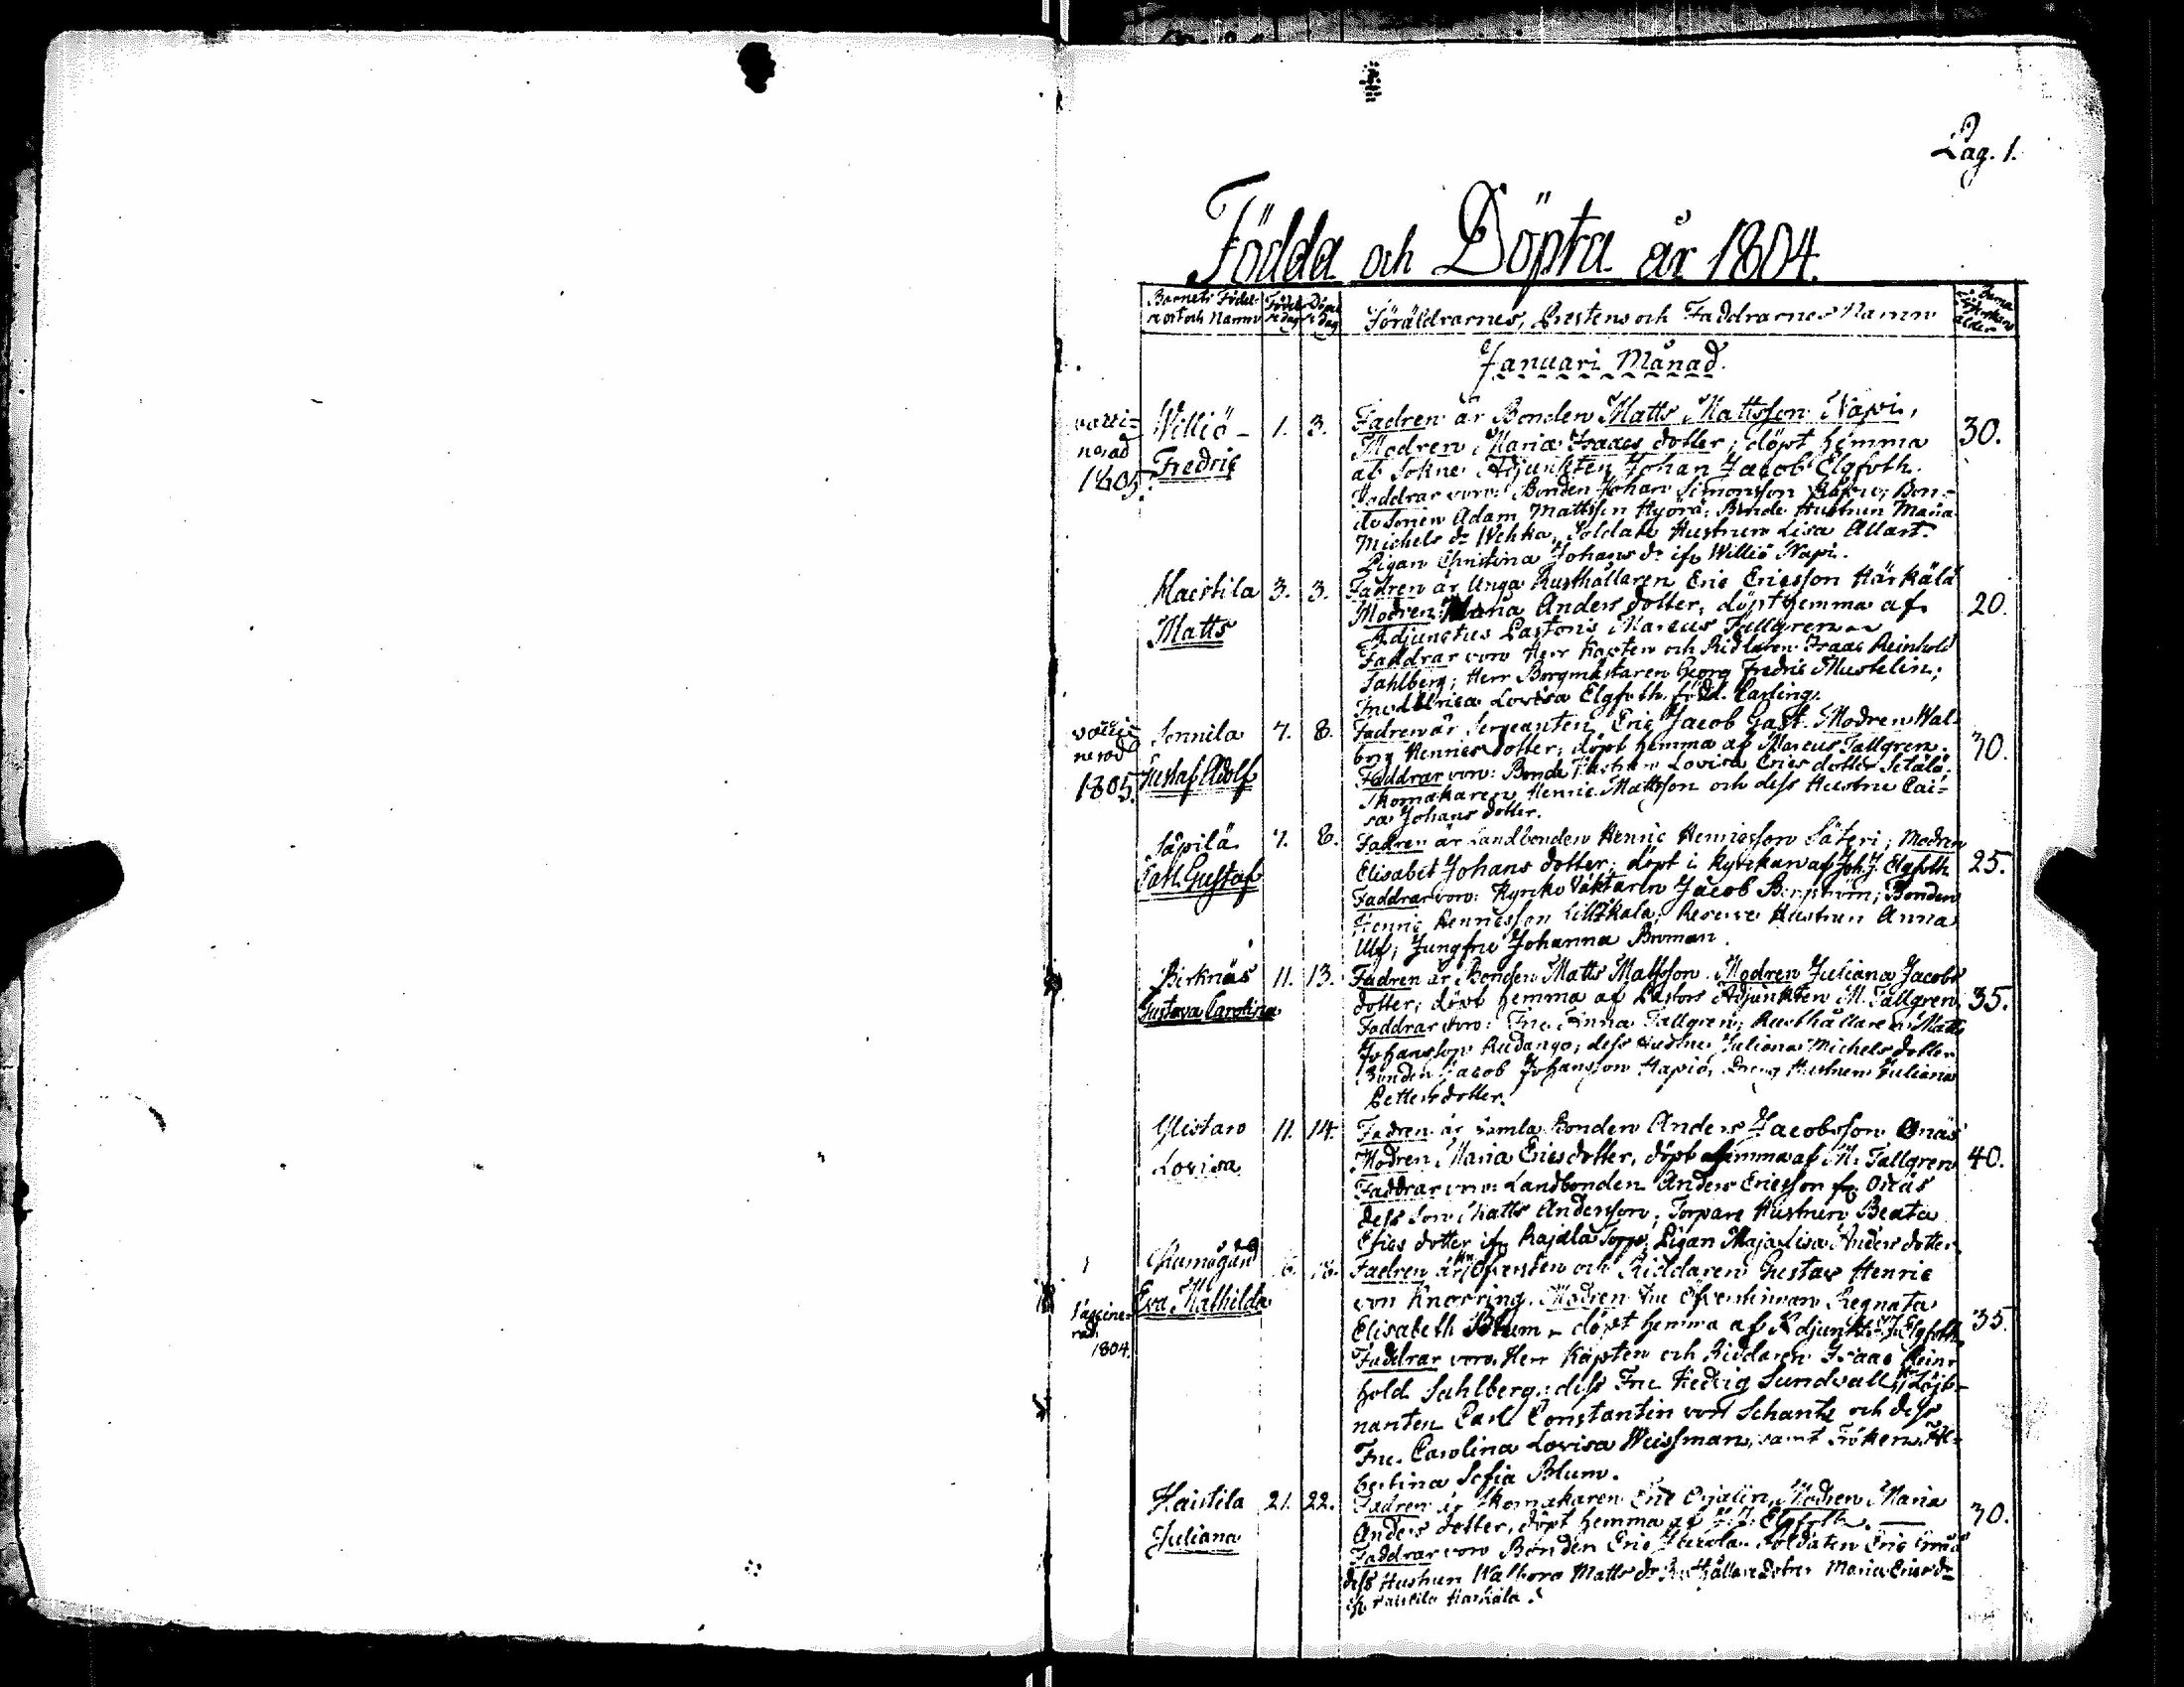 Pag. 1.
Födda och Döpta år 1804.
Barnets Födel-
se ort och Namn
Födel
se dag
Döpel
se dag
Föräldrarnes, Prestens och Faddrarnes Namn
ålder
Januari Månad.
vacci-
nerad
1805.
Williö -
Fredric
1. 3.
Fadren är Bonden Matts Mattsson Napi,
Modren Maria Isaacs dotter; döpt hemma
af Sokne Adjunkten Johan Jacob Elgfoth.
Faddrar voro: Bonden Johan Simonsson Bon-
de Sonen Adam Mattsson Hyörä, Bonde Hustrun Maria
Michels dr Wehka, Soldats Hustrun Lisa Allart.
Pigan Christina Johans dr ifr Williö Napi.
30.
Haistila
Matts
3. 3.
Fadren är Unga Rusthållaren Eric Ericsson Härkälä
Modren Anders dotter, döpt hemma af
Adjunctus Pastoris Marcus Tallgren
Faddrar voro Herr Kapten och Riddaren Isaac Reinhold
Sahlberg; Herr Borgmästaren Georg Fredric Mustelin;
Fru Ulrica Lovisa Elgfoth född Carling.
20.
vacci-
nerad
1805.
Sonnila
Gustaf Adolf
7. 8.
Fadren är Sergeanten Eric Jacob Gast. Modren Wal-
borg Henrics dotter; döpt hemma af Marcus Tallgren.
Faddrar voro: Bonde Hustrun Lovisa Erics dotter Setälä.
Skomakaren Henric Mattsson och dess Hustru Cai-
sa Johans dotter.
30.
Säpilä
Carl Gustaf
7. 8.
Fadren är Landbonden Henric Henricsson Säteri; Modren
Elisabet Johans dotter; döpt i kyrkan af Joh. J. Elgfoth
Faddrar voro: Kyrko Väktaren Jacob Bergström; Bonden
Henric Henricsson Reserve Hustrun Anna
Ulf; Jungfru Johanna Broman.
25.
Birknäs
Gustava Carolina
11. 13.
Fadren är Bonden Matts Mattsson. Modren Juliana Jacobs
dotter; döpt hemma af Pastors Adjunkten M. Tallgren
Faddrar voro: Fru Anna Tallgren; Rusthållaren Matts
Johansson Rudango; dess Hustru Juliana Michels dotter
Bonden Jacob Johansson Hapiö, Dreng Hustrun Juliana
Petters dotter.
35.
Ylistaro
Lovisa
11. 14.
Fadren är Gamla Bonden Anders Jacobsson Onäs
Modren Maria Erics dotter, döpt hemma af M. Tallgren
Faddrar voro: Landbonden Anders Ericsson fr. Onäs
dess Son Matts Andersson; Torpare Hustrun Beata
Erics dotter ifr Rajala Torp; Pigan Maja Lisa Anders dotter.
40.
Vaccine-
rad
1804.
Eva Mathilda
6. 18.
Fadren är Hr Öfversten och Riddaren Gustav Henric
von Knorring. Modren Fru Öfverstinnan Regnata
Elisabeth Blum - döpt hemma af Adjunkt J. J. Elgfoth
Faddrar voro Herr Kapten och Riddaren Isaac Rein-
hold Sahlberg; dess Fru Hedvig Sundvall, Hr Löjt-
nanten Carl Constantin von Schantz och dess
Fru. Carolina Lovisa Weissman, samt Fröken Al-
bertina Sofia Blum.
35.
Haistila
Juliana
21. 22.
Fadren är Skomakaren Eric Modren Maria
Anders dotter, döpt hemma af J. J. Elgfoth.
Faddrar voro Bonden Eric Soldaten Eric
dess Hustrun Walbora Matts dr Rusthållare dotter Maria Erics dr
ifr Haistila Härkälä.
30.